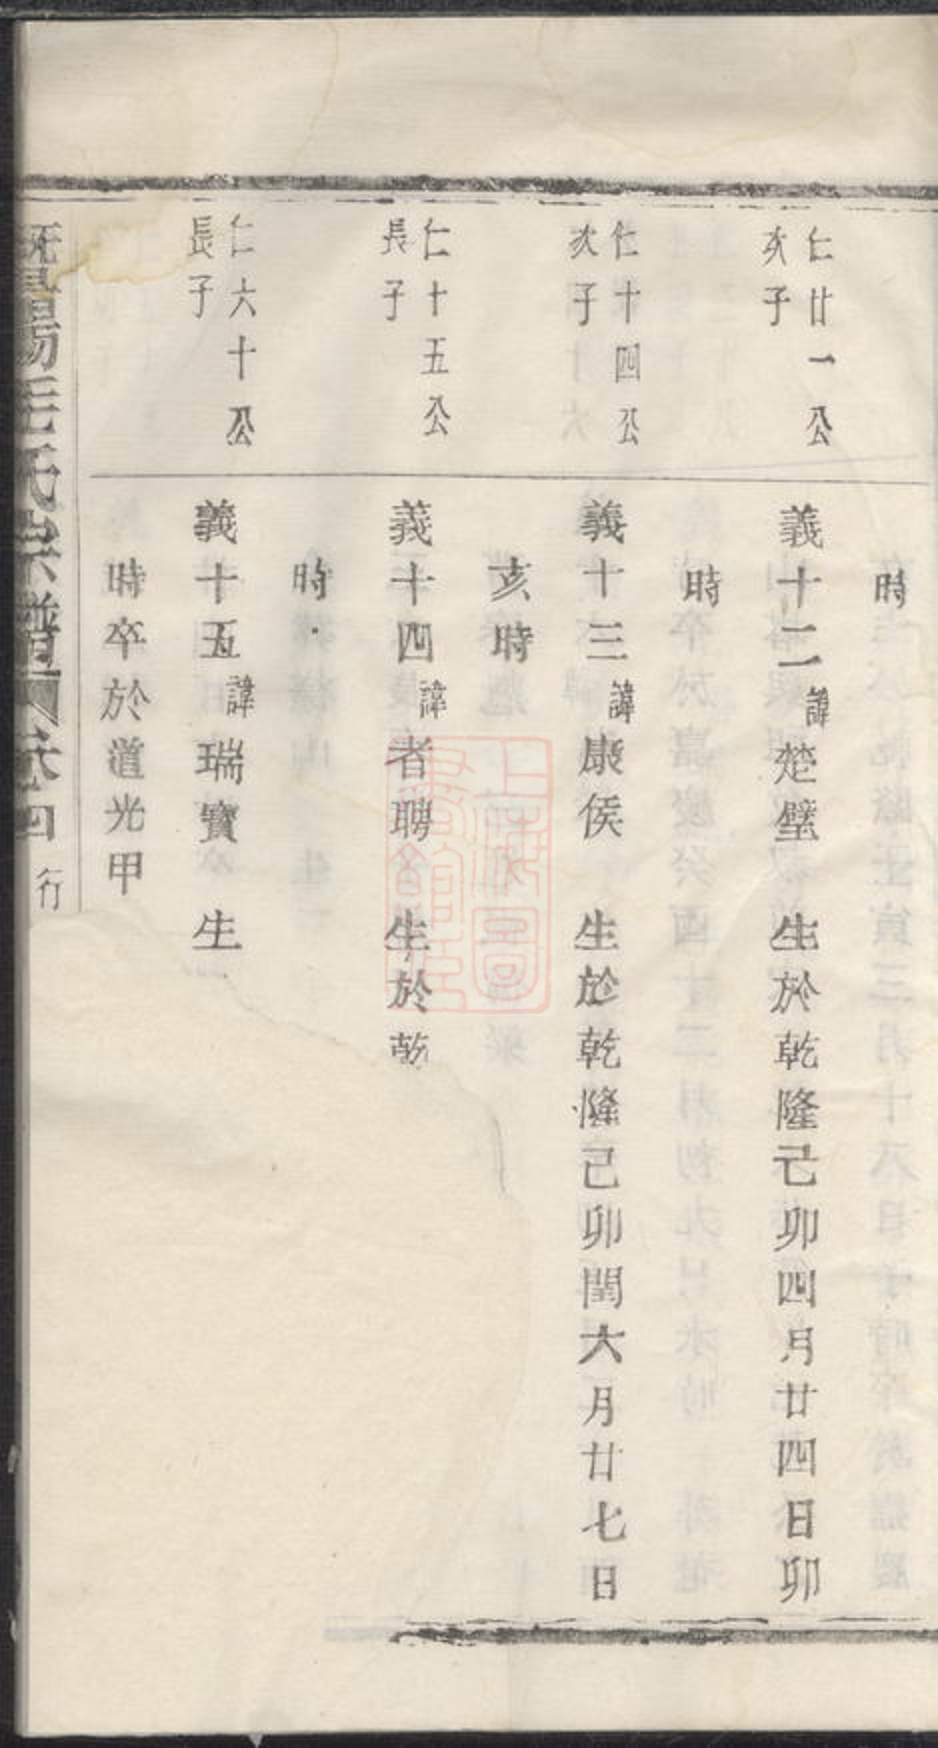 時
仁廿一公
次子
義十二諱楚璧　生於乾隆己卯四月廿四日卯
時
仁十四公
次子
義十三諱康侯　生於乾隆己卯閏六月廿七日
亥時
仁十五公
長子
義十四諱者聘　生於乾
時
仁六十公
長子
義十五諱瑞寶　生
時卒於道光甲
暨陽毛氏宗譜　卷四　行
上海圖書館藏